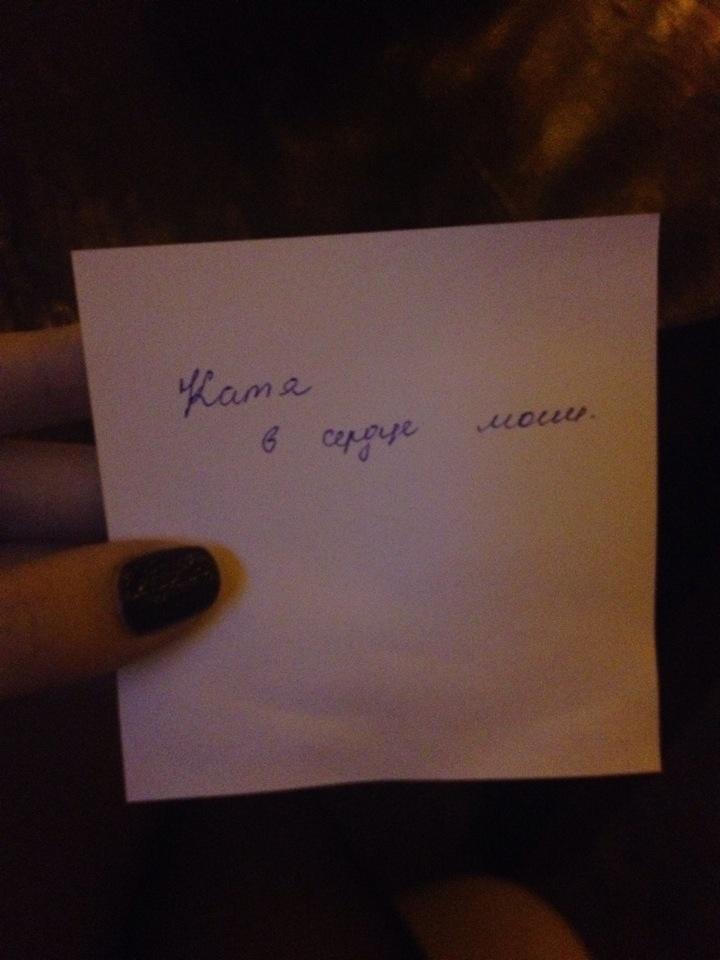 Катя
в сердце моем.